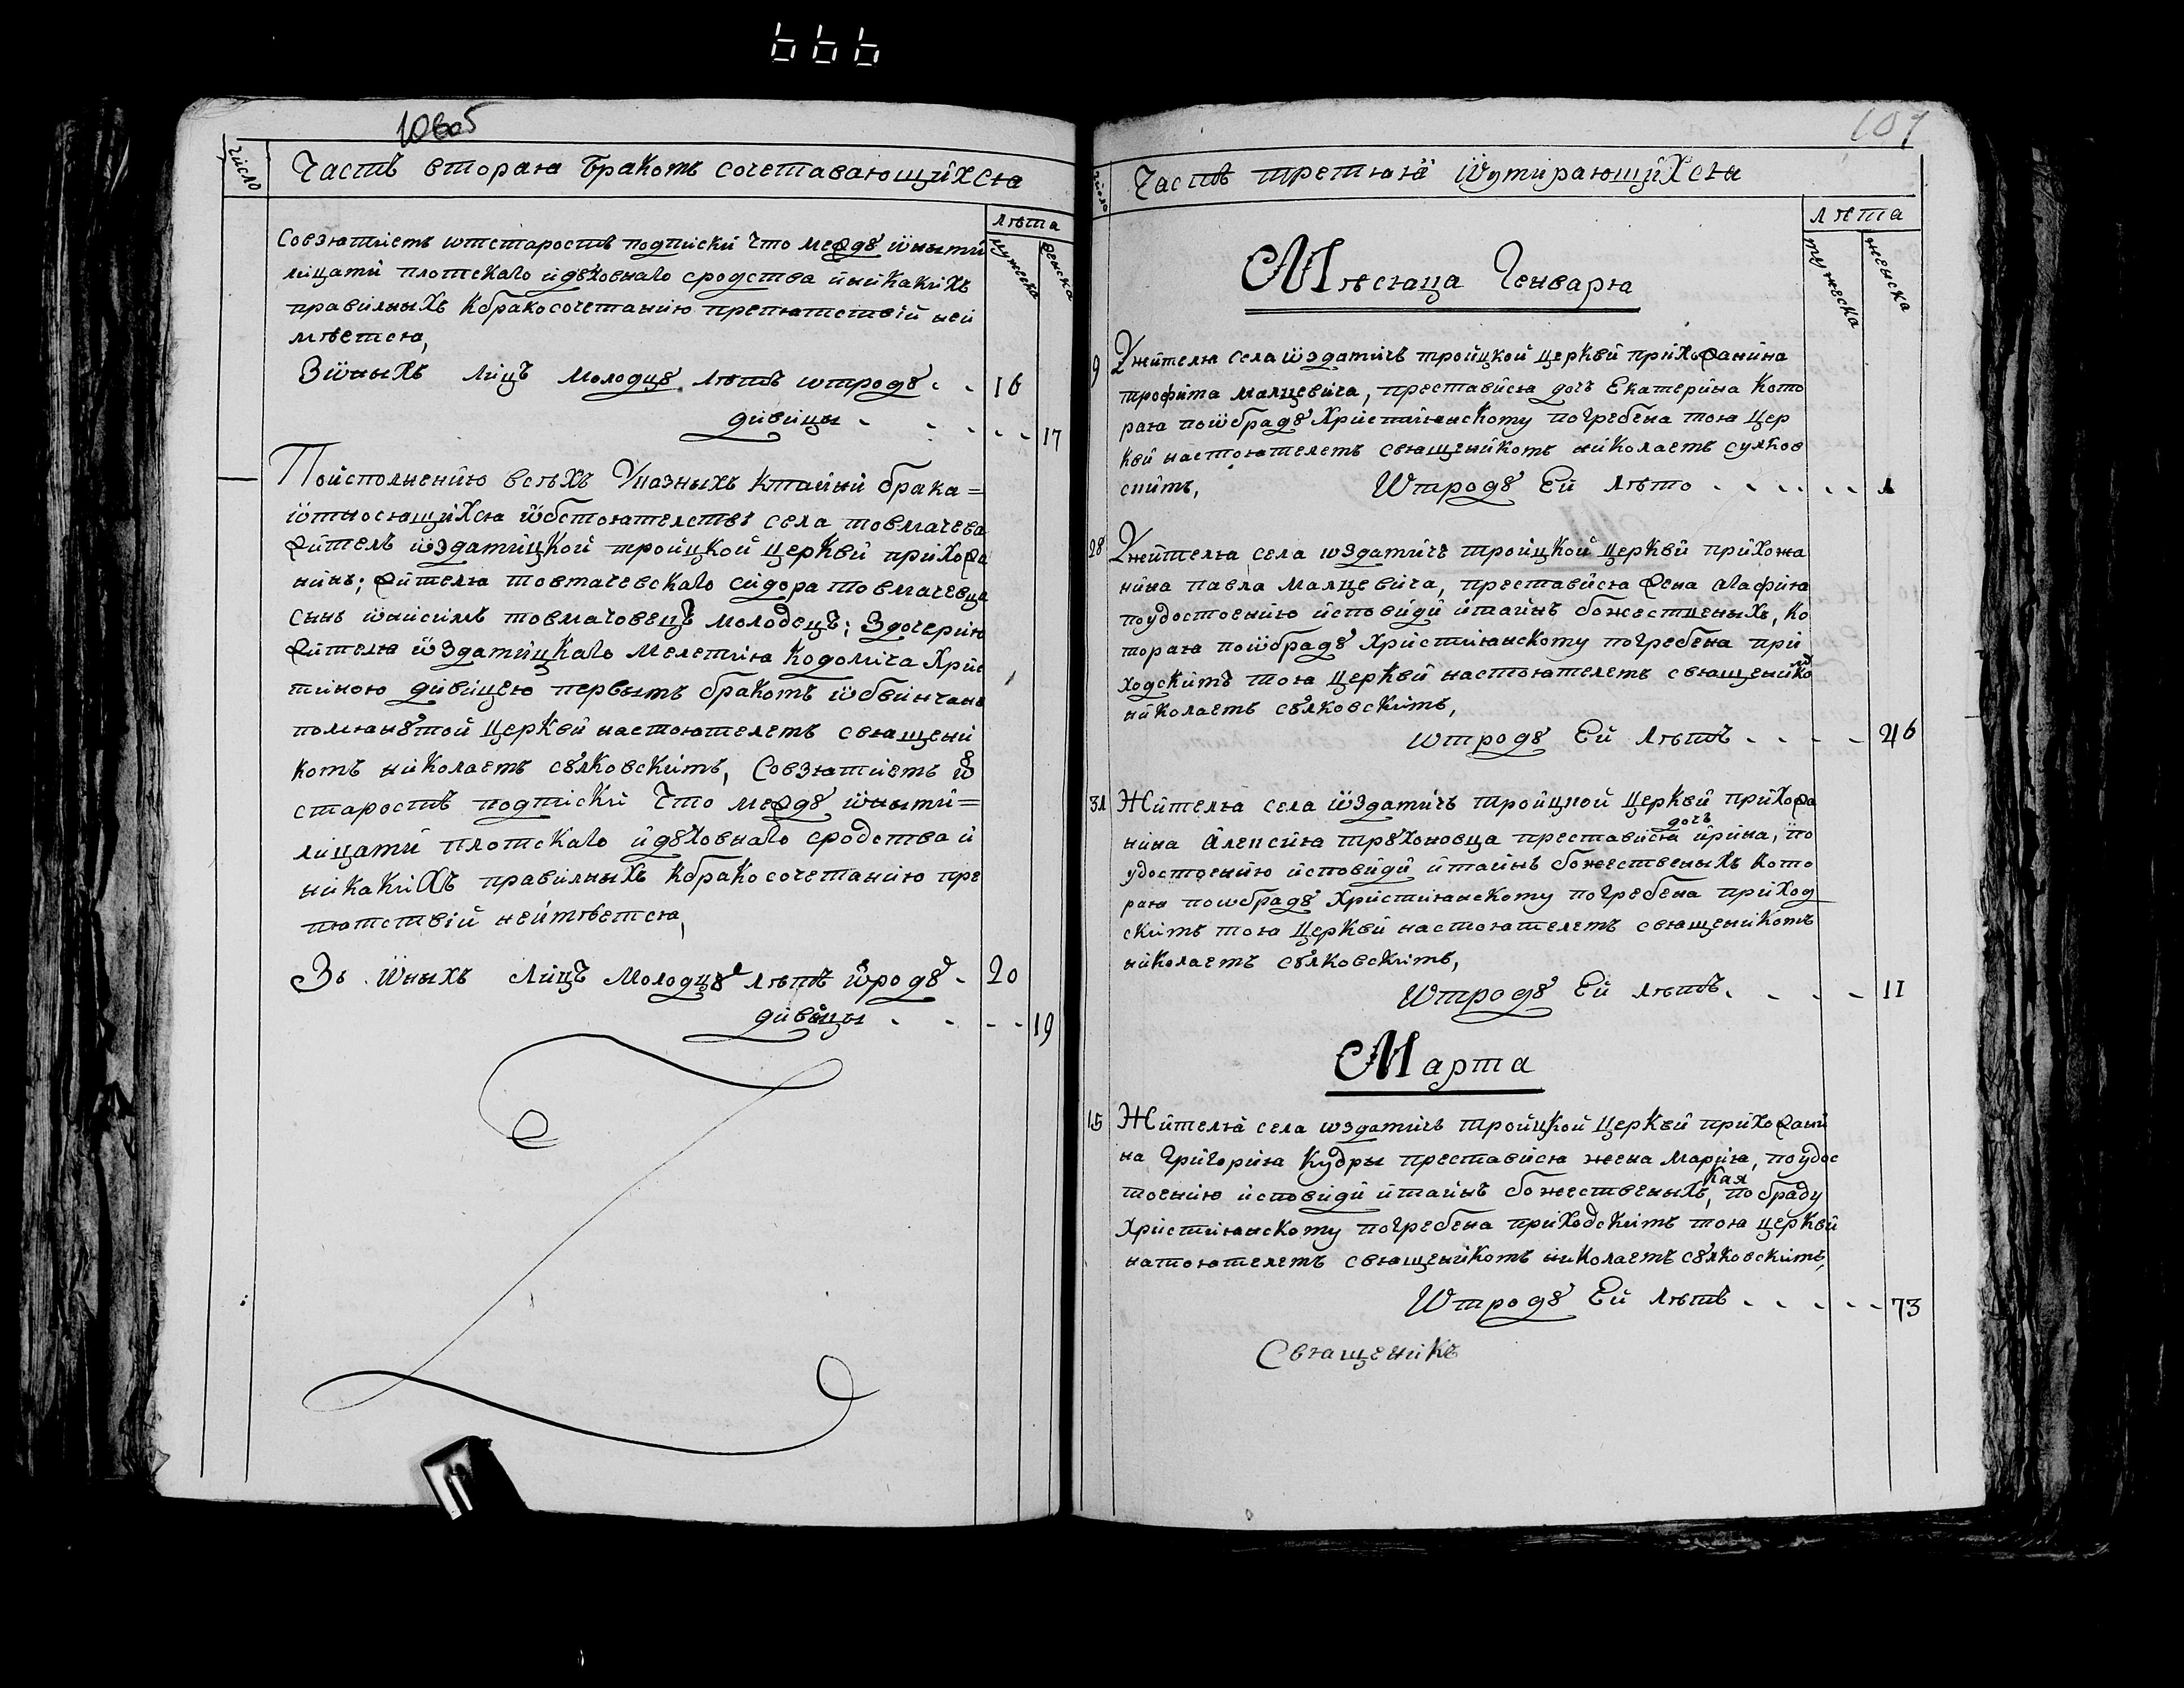 666
Число
Часть вторая бракомъ сочетавающихся
лѣта
мужеска
женска
Совзятиемъ ѿтстаросты подписки что между ѡными
лицами плотскаго идꙋховнаго сродства иникакихъ
правилныхъ кбракосочетанию препятствий неи
мѣется,
Зѡныхъ лицъ молодцꙋ лѣтъ ѡтродꙋ 16
дивицы 17
Поисполнению всѣхъ Указныхъ ктайни брака=
ѡтносящихся ѡбстоятелствъ села товмачева
житель ѡздатицкой троицкой церкви прихожа
нинъ; жителя товмачевскаго сидора товмачевца
сынъ ѡнисимъ товмачовецъ молодецъ; Здочерию
жителя ѡздатицкаго мелетия кодолича Хрис
тиною дивицею первымъ бракомъ ѡбвинчанъ
помянꙋтой церкви настоятелемъ священи
комъ николаемъ сꙋлковскимъ, Совзятиемъ ѿ
старосты подписки что междꙋ ѡными=
лицами плотскаго идꙋховнаго сродства и
никакихъ правилныхъ кбракосочетанию пре
пятствий неимѣется,
Зъ ѡныхъ лицъ молодцꙋ лѣтъ ѿродꙋ 20
дивицы 19
107
Число
Часть третяя ѡумирающихся
лѣта
мужеска
женска
Мѣсяца Генваря
9 Ужителя села ѡздатичъ троицкой церкви прихожанина
трофима малцевича, преставися дочъ Екатерина кото
рая поѡбрадꙋ Християнскому погребена тоя цер
кви настоятелемъ священикомъ николаемъ сулков
скимъ, Ѡтродꙋ Ей лѣто 1
28 Ужителя села ѡздатичъ троицкой церкви прихожа
нина павла малцевича, преставися жена агафия
поудостоению исповиди итаинъ божествены​хъ, ко
торая поѡбрадꙋ християнскому погребена при
ходскимъ тоя церкви настоятелемъ священикомъ
николаемъ сꙋлковскимъ,
ѡтродꙋ Ей лѣтъ 46
31 Жителя села ѡздатичъ троицкой церкви прихожа
нина Алексия трꙋхоновца преставися дочъ ирина, по
удостоению исповиди итаинъ божественыхъ кото
рая поѡбрадꙋ християнскому погребена приход
скимъ тоя церкви настоятелемъ священикомъ
николаемъ сꙋлковскимъ,
Ѡтродꙋ Ей лѣтъ 11
Марта
15 Жителя села ѡздатичъ троицкой церкви прихожани
на григория кудры преставися жена мария, поудос
тоению исповиди итаинъ божественыхъ, кая по браду
християнскому погребена приходскимъ тоя церкви
натоятелемъ священикомъ николаемъ сꙋлковскимъ,
Ѡтродꙋ Ей лѣтъ 73
Священикъ